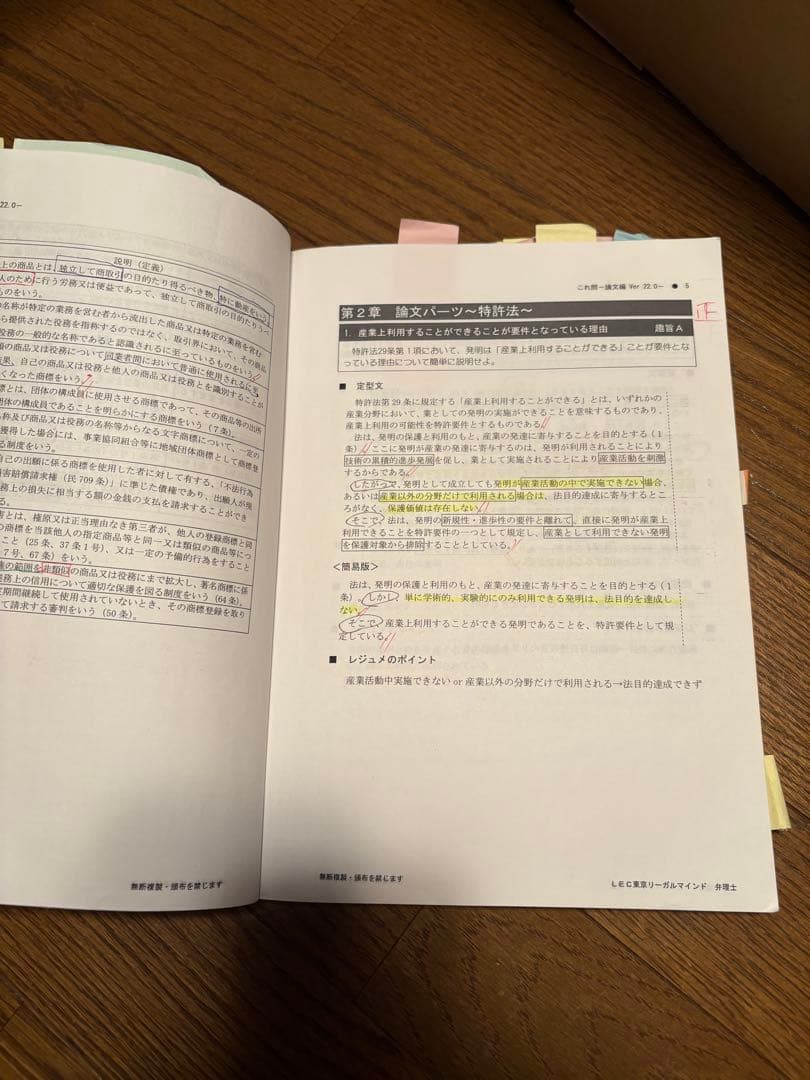 22.0－
説明（定義）
上の商品とは、独立して商取引の目的たり得るべき物、特に動産をいう。
人のために行う労務又は便益であって、独立して商取引の目的たりうべ
ものをいう。
の名称が特定の業務を営む者から流出した商品又は特定の業務を営む
ら提供された役務を指称するのではなく、取引界において、その商品
役務の一般的な名称であると認識されるに至っているものをいう。
類の商品又は役務について同業者間において普通に使用されるに至
果、自己の商品又は役務と他人の商品又は役務とを識別することが
くなった商標をいう。
標とは、団体の構成員に使用させる商標であって、その商品等の出所
団体の構成員であることを明らかにする商標をいう（７条）。
名称及び商品又は役務の名称等からなる文字商標について、一定の
獲得した場合には、事業協同組合等に地域団体商標として商標登
る制度をいう。
自己の出願に係る商標を使用した者に対して有する、「不法行為
損害賠償請求権（民 709 条）」に準じた債権であり、出願人が被
務上の損失に相当する額の金銭の支払を請求することができ
う。
害とは、権原又は正当理由なき第三者が、他人の登録商標と同
の商標を当該他人の指定商品等と同一又は類似の商品等につ
こと（25 条、37 条１号）、又は一定の予備的行為をすること
７号、67 条）をいう。
の範囲を非類似の商品又は役務にまで拡大し、著名商標に係
務上の信用について適切な保護を図る制度をいう（64 条）。
定期間継続して使用されていないとき、その商標登録を取り
て請求する審判をいう（50 条）。
無断複製・頒布を禁じます
これ問－論文編 Ver 22.0－ ● 5
第２章　論文パーツ～特許法～
1. 産業上利用することができることが要件となっている理由　趣旨Ａ
特許法29条第１項において、発明は「産業上利用することができる」ことが要件となっ
ている理由について簡単に説明せよ。
■ 定型文
特許法第 29 条に規定する「産業上利用することができる」とは、いずれかの
産業分野において、業としての発明の実施ができることを意味するものであり、
産業上利用の可能性を特許要件とするものである。
法は、発明の保護と利用のもと、産業の発達に寄与することを目的とする（1
条）。ここに発明が産業の発達に寄与するのは、発明が利用されることにより
技術の累積的進歩発展を促し、業として実施されることにより産業活動を刺激
するからである。
したがって、発明として成立しても発明が産業活動の中で実施できない場合、
あるいは産業以外の分野だけで利用される場合は、法目的達成に寄与するとこ
ろがなく、保護価値は存在しない。
そこで、法は、発明の新規性・進歩性の要件と離れて、直接に発明が産業上
利用できることを特許要件の一つとして規定し、産業として利用できない発明
を保護対象から排除することとしている。
＜簡易版＞
法は、発明の保護と利用のもと、産業の発達に寄与することを目的とする（1
条）。しかし、単に学術的、実験的にのみ利用できる発明は、法目的を達成し
ない。
そこで、産業上利用することができる発明であることを、特許要件として規
定している。
■ レジュメのポイント
産業活動中実施できない or 産業以外の分野だけで利用される→法目的達成できず
無断複製・頒布を禁じます
ＬＥＣ東京リーガルマインド　弁理士